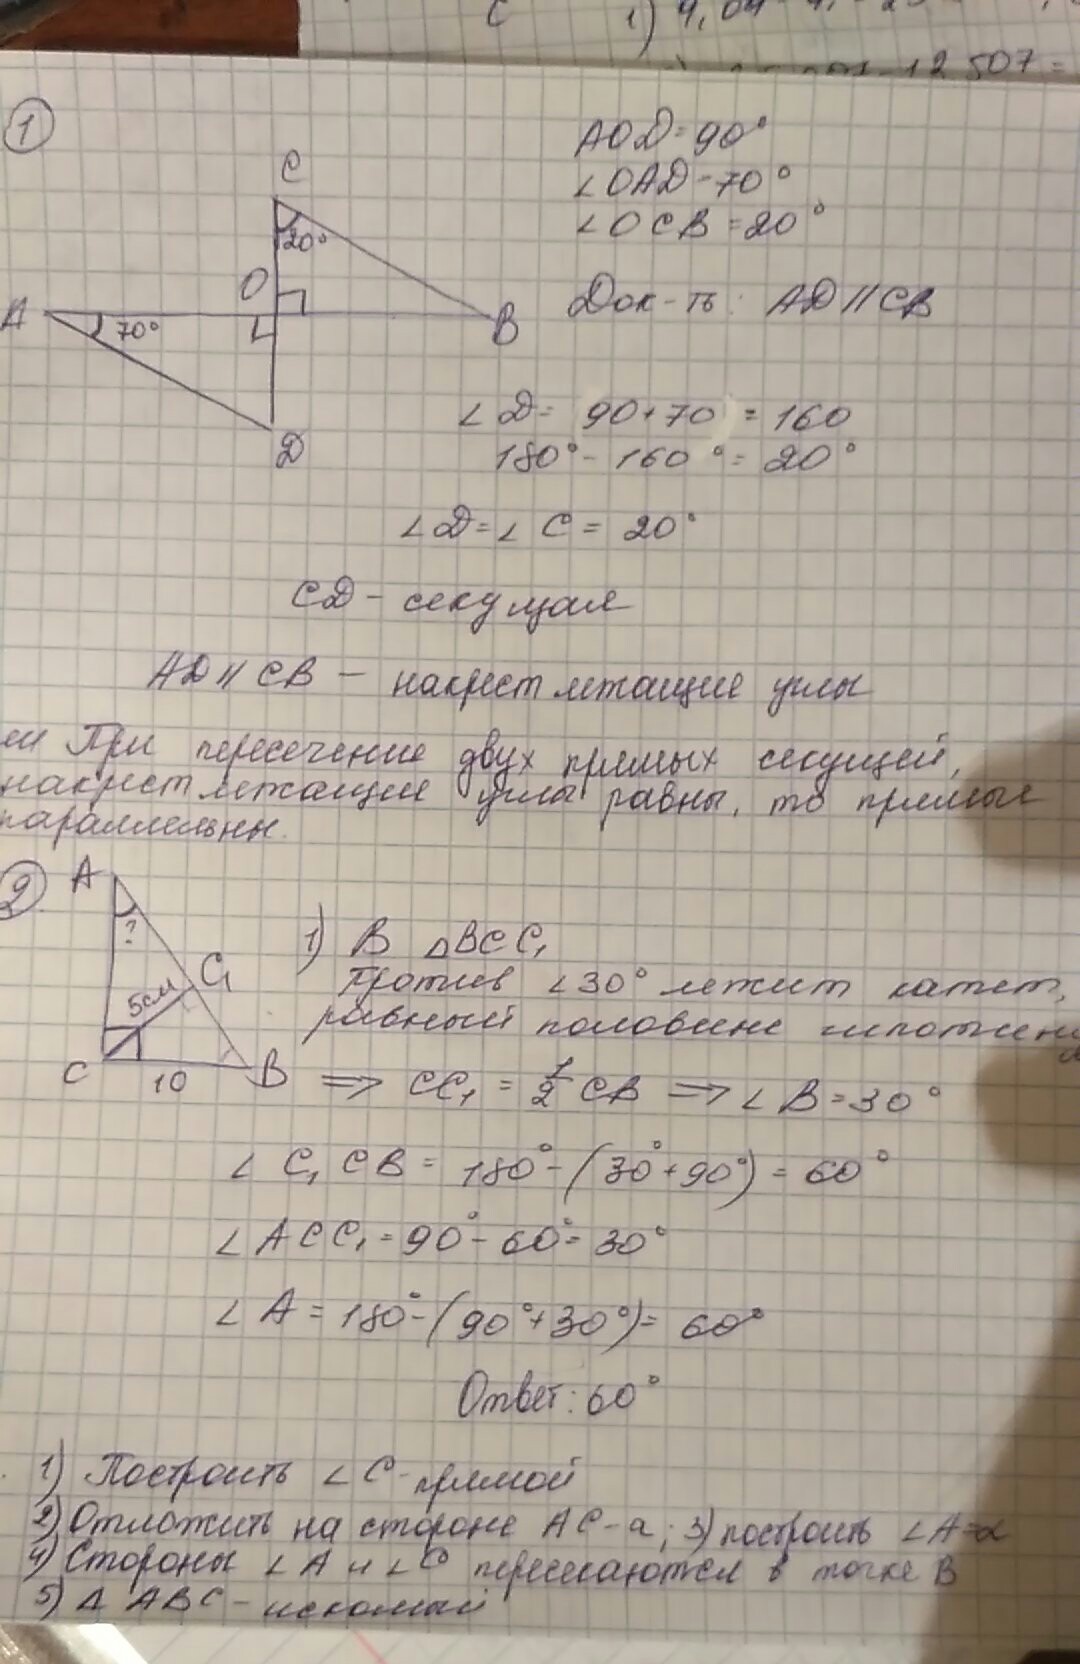 С
1)
12 507 =
1
AOD = 90°
∠OAD = 70°
∠OCB = 20°
C
20°
O
A
70°
B
Д
Док-ть: AD || CB
∠D = 90 + 70 = 160
180° - 160° = 20°
∠D = ∠C = 20°
CD - секущая
AD || CB - накрест лежащие углы
При пересечение двух прямых секущей,
накрест лежащие углы равны, то прямые
параллельны.
2
A
?
5см
C₁
C
10
B
1) В ΔBCC₁
Против ∠30° лежит катет,
равный половине
=> CC₁ = 1/2 CB => ∠B = 30°
∠C₁CB = 180° - (30° + 90°) = 60°
∠ACC₁ = 90° - 60° = 30°
∠A = 180° - (90° + 30°) = 60°
Ответ: 60°
1) Построить ∠C - прямой
2) Отложить на стороне AC - a; 3) построить ∠A = α
4) Стороны ∠A и ∠C пересекаются в точке B
5) Δ ABC - искомый